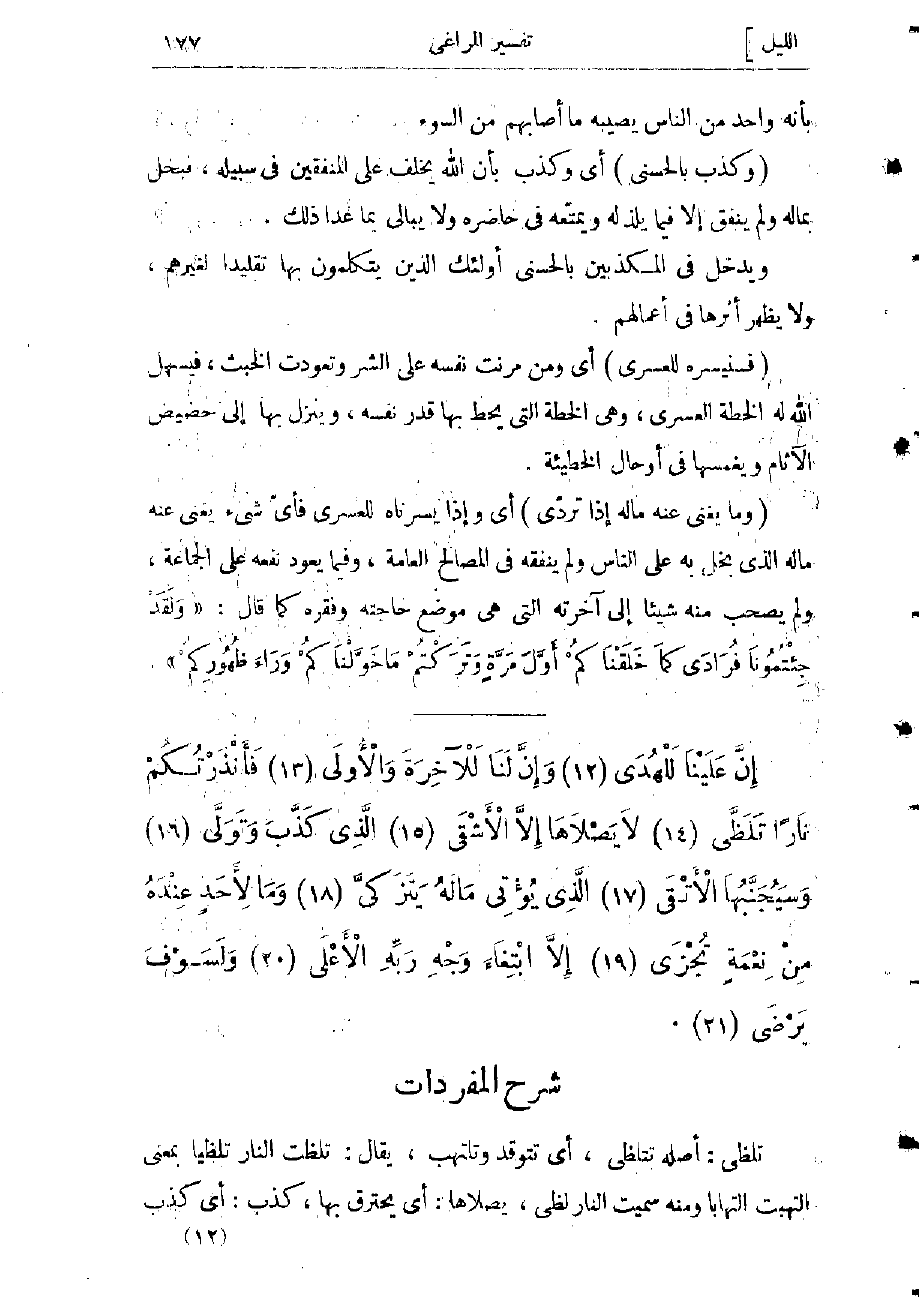 الليل ]
تفسير المراغى
١٧٧
بأنه واحد من الناس يصيبه ما أصابهم من السوء
( وكذب بالحسنى ) أى وكذب بأن الله يخلف على المنفقين فى سبيله ، فبخل
بماله ولم ينفق إلا فيما يلذ له ويمتّعه فى حاضره ولا يبالى بما عدا ذلك .
ويدخل فى المكذبين بالحسنى أولئك الذين يتكلمون بها تقليدا لغيرهم ،
ولا يظهر أثرها فى أعمالهم .
( فسنيسره للعسرى ) أى ومن مرنت نفسه على الشر وتعودت الخبث ، فيسهل
الله له الخطة العسرى ، وهى الخطة التى يحط بها قدر نفسه ، وينزل بها إلى حضيض
الآثام ويغمسها فى أوحال الخطيئة .
( وما يغنى عنه ماله إذا تردّى ) أى وإذا يسرناه للعسرى فأىّ شىء يغنى عنه
ماله الذى بخل به على الناس ولم ينفقه فى المصالح العامة ، وفيما يعود نفعه على الجماعة ،
ولم يصحب منه شيئا إلى آخرته التى هى موضع حاجته وفقره كما قال : « وَلَقَدْ
جِئْتُمُونَا فُرَادَى كَمَا خَلَقْنَاكُمْ أَوَّلَ مَرَّةٍ وَتَرَكْتُمْ مَا خَوَّلْنَاكُمْ وَرَاءَ ظُهُورِكُمْ » .
إِنَّ عَلَيْنَا لَلْهُدَى (١٢) وَإِنَّ لَنَا لَلْآخِرَةَ وَالْأُولَى (١٣) فَأَنْذَرْتُكُمْ
نَارًا تَلَظَّى (١٤) لاَ يَصْلاَهَا إِلاَّ الْأَشْقَى (١٥) الَّذِى كَذَّبَ وَتَوَلَّى (١٦)
وَسَيُجَنَّبُهَا الْأَتْقَى (١٧) الَّذِى يُؤْتِى مَالَهُ يَتَزَكَّىَ (١٨) وَمَا لِأَحَدٍ عِنْدَهُ
مِنْ نِعْمَةٍ تُجْزَى (١٩) إِلاَّ ابْتِغَاءَ وَجْهِ رَبِّهِ الْأَعْلَى (٢٠) وَلَسَوْفَ
يَرْضَى (٢١) .
شرح المفردات
تلظى : أصله تتلظى ، أى تتوقد وتلتهب ، يقال : تلظت النار تلظيا بمعنى
التهبت التهابا ومنه سميت النار لظى ، يصلاها : أى يحترق بها ، كذب : أى كذب
(١٢)